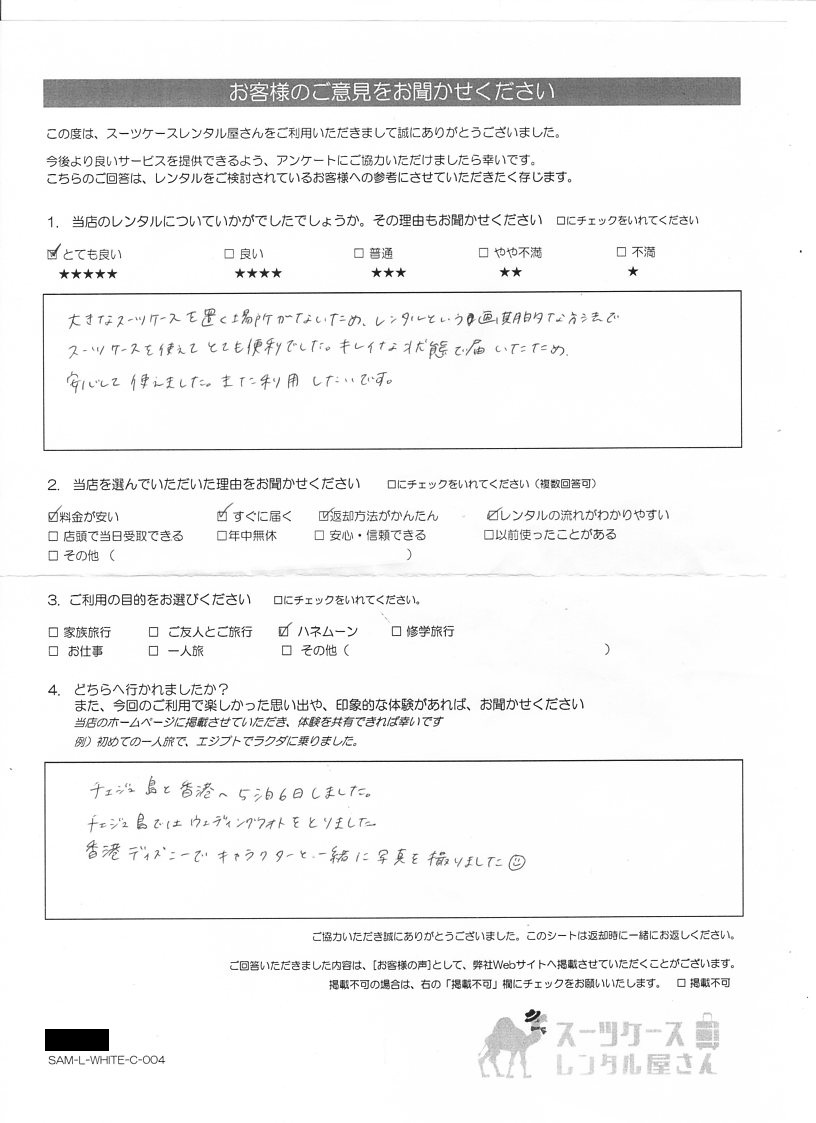 お客様のご意見をお聞かせください
この度は、スーツケースレンタル屋さんをご利用いただきまして誠にありがとうございました。
今後より良いサービスを提供できるよう、アンケートにご協力いただけましたら幸いです。
こちらのご回答は、レンタルをご検討されているお客様への参考にさせていただきたく存じます。
1. 当店のレンタルについていかがでしたでしょうか。その理由もお聞かせください □にチェックをいれてください
☑とても良い □ 良い □ 普通 □ やや不満 □ 不満
★★★★★ ★★★★ ★★★ ★★ ★
大きなスーツケースを置く場所がないため、レンタルという画期的な方法で
スーツケースを使えてとても便利でした。キレイな状態で届いたため、
安心して使えました。また利用したいです。
2. 当店を選んでいただいた理由をお聞かせください □にチェックをいれてください（複数回答可）
☑料金が安い ☑ すぐに届く ☑返却方法がかんたん ☑レンタルの流れがわかりやすい
□ 店頭で当日受取できる □年中無休 □ 安心・信頼できる □以前使ったことがある
□ その他（ ）
3. ご利用の目的をお選びください □にチェックをいれてください。
□ 家族旅行 □ ご友人とご旅行 ☑ ハネムーン □ 修学旅行
□ お仕事 □ 一人旅 □ その他（ ）
4. どちらへ行かれましたか？
また、今回のご利用で楽しかった思い出や、印象的な体験があれば、お聞かせください
当店のホームページに掲載させていただき、体験を共有できれば幸いです
例）初めての一人旅で、エジプトでラクダに乗りました。
チェジュ島と香港へ5泊6日しました。
チェジュ島ではウェディングフォトをとりました
香港ディズニーでキャラクターと一緒に写真を撮りました☺
ご協力いただき誠にありがとうございました。このシートは返却時に一緒にお返しください。
ご回答いただきました内容は、[お客様の声]として、弊社Webサイトへ掲載させていただくことがございます。
掲載不可の場合は、右の「掲載不可」欄にチェックをお願いいたします。 □ 掲載不可
SAM-L-WHITE-C-004
スーツケース
レンタル屋さん